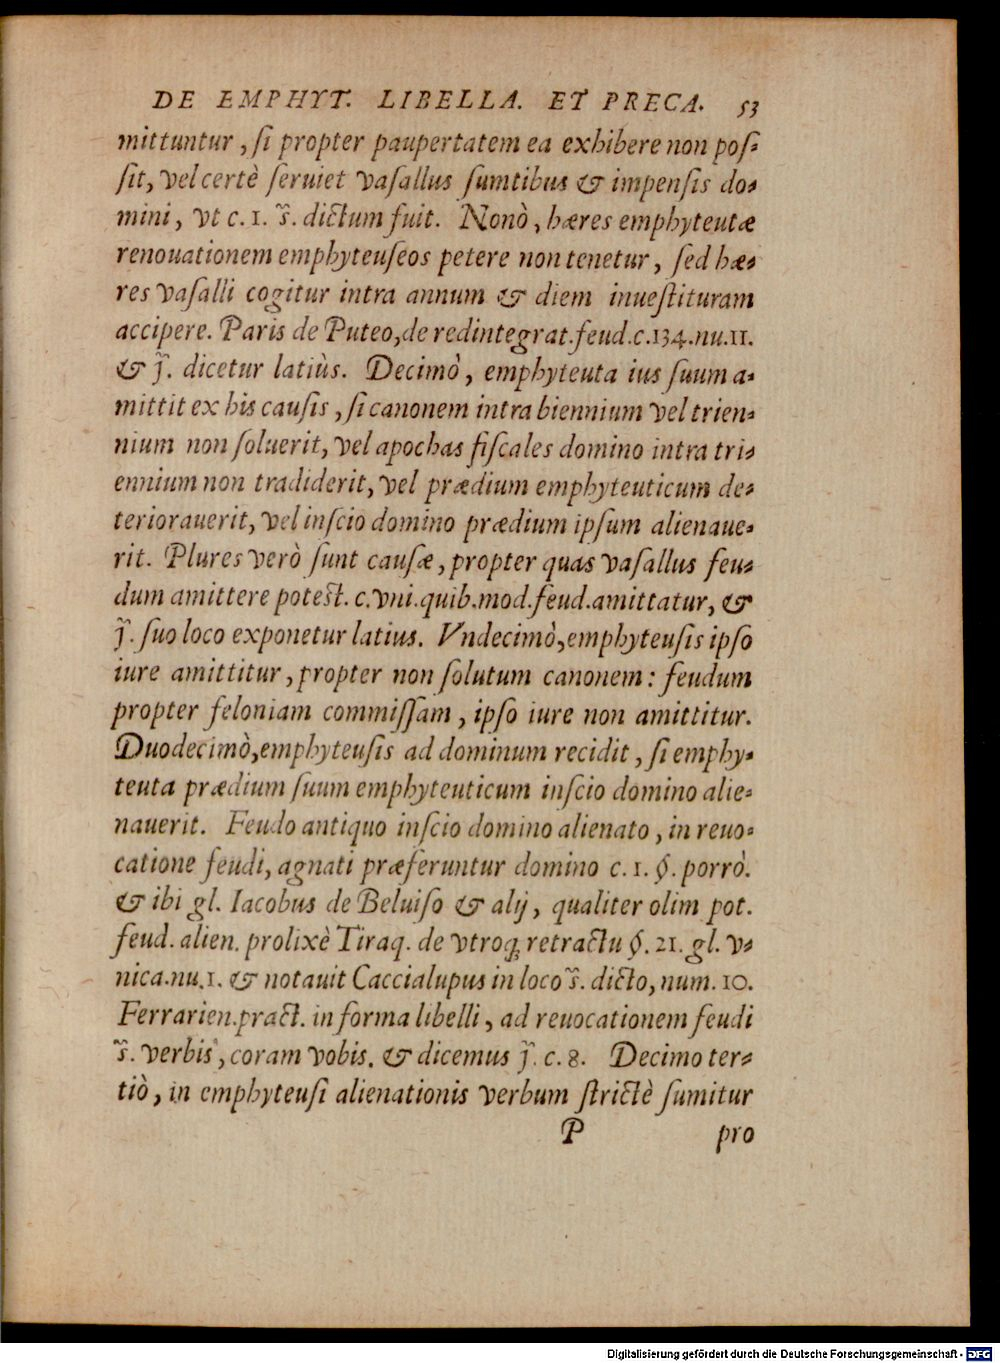 DE EMPHYT. LIBELLA. ET PRECA. 53
mittuntur, ſi propter paupertatem ea exhibere non poſ-
ſit, vel certè ſeruiet vaſallus ſumtibus & impenſis do-
mini, vt c. 1. s̃. dictum fuit. Nonò, hæres emphyteutæ
renouationem emphyteuſeos petere non tenetur, ſed hæ-
res vaſalli cogitur intra annum & diem inueſtituram
accipere. Paris de Puteo, de redintegrat. feud. c. 134. nu. 11.
& j̃. dicetur latiùs. Decimò, emphyteuta ius ſuum a-
mittit ex his cauſis, ſi canonem intra biennium vel trien-
nium non ſoluerit, vel apochas fiſcales domino intra tri-
ennium non tradiderit, vel prædium emphyteuticum de-
teriorauerit, vel inſcio domino prædium ipſum alienaue-
rit. Plures verò ſunt cauſæ, propter quas vaſallus feu-
dum amittere poteſt. c. vni. quib. mod. feud. amittatur, &
j̃. ſuo loco exponetur latius. Vndecimò, emphyteuſis ipſo
iure amittitur, propter non ſolutum canonem: feudum
propter feloniam commiſſam, ipſo iure non amittitur.
Duodecimò, emphyteuſis ad dominum recidit, ſi emphy-
teuta prædium ſuum emphyteuticum inſcio domino alie-
nauerit. Feudo antiquo inſcio domino alienato, in reuo-
catione feudi, agnati præferuntur domino c. 1. §. porrò.
& ibi gl. Iacobus de Beluiſo & alij, qualiter olim pot.
feud. alien. prolixè Tiraq. de vtroq; retractu §. 21. gl. v-
nica. nu. 1. & notauit Caccialupus in loco s̃. dicto, num. 10.
Ferrarien. pract. in forma libelli, ad reuocationem feudi
s̃. verbis, coram vobis. & dicemus j̃. c. 8. Decimo ter-
tiò, in emphyteuſi alienationis verbum ſtrictè ſumitur
P pro
Digitalisierung gefördert durch die Deutsche Forschungsgemeinschaft - DFG